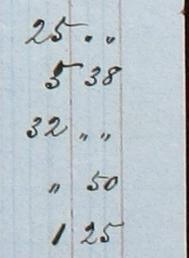 25 „
5 38
32 „
„ 50
1 25